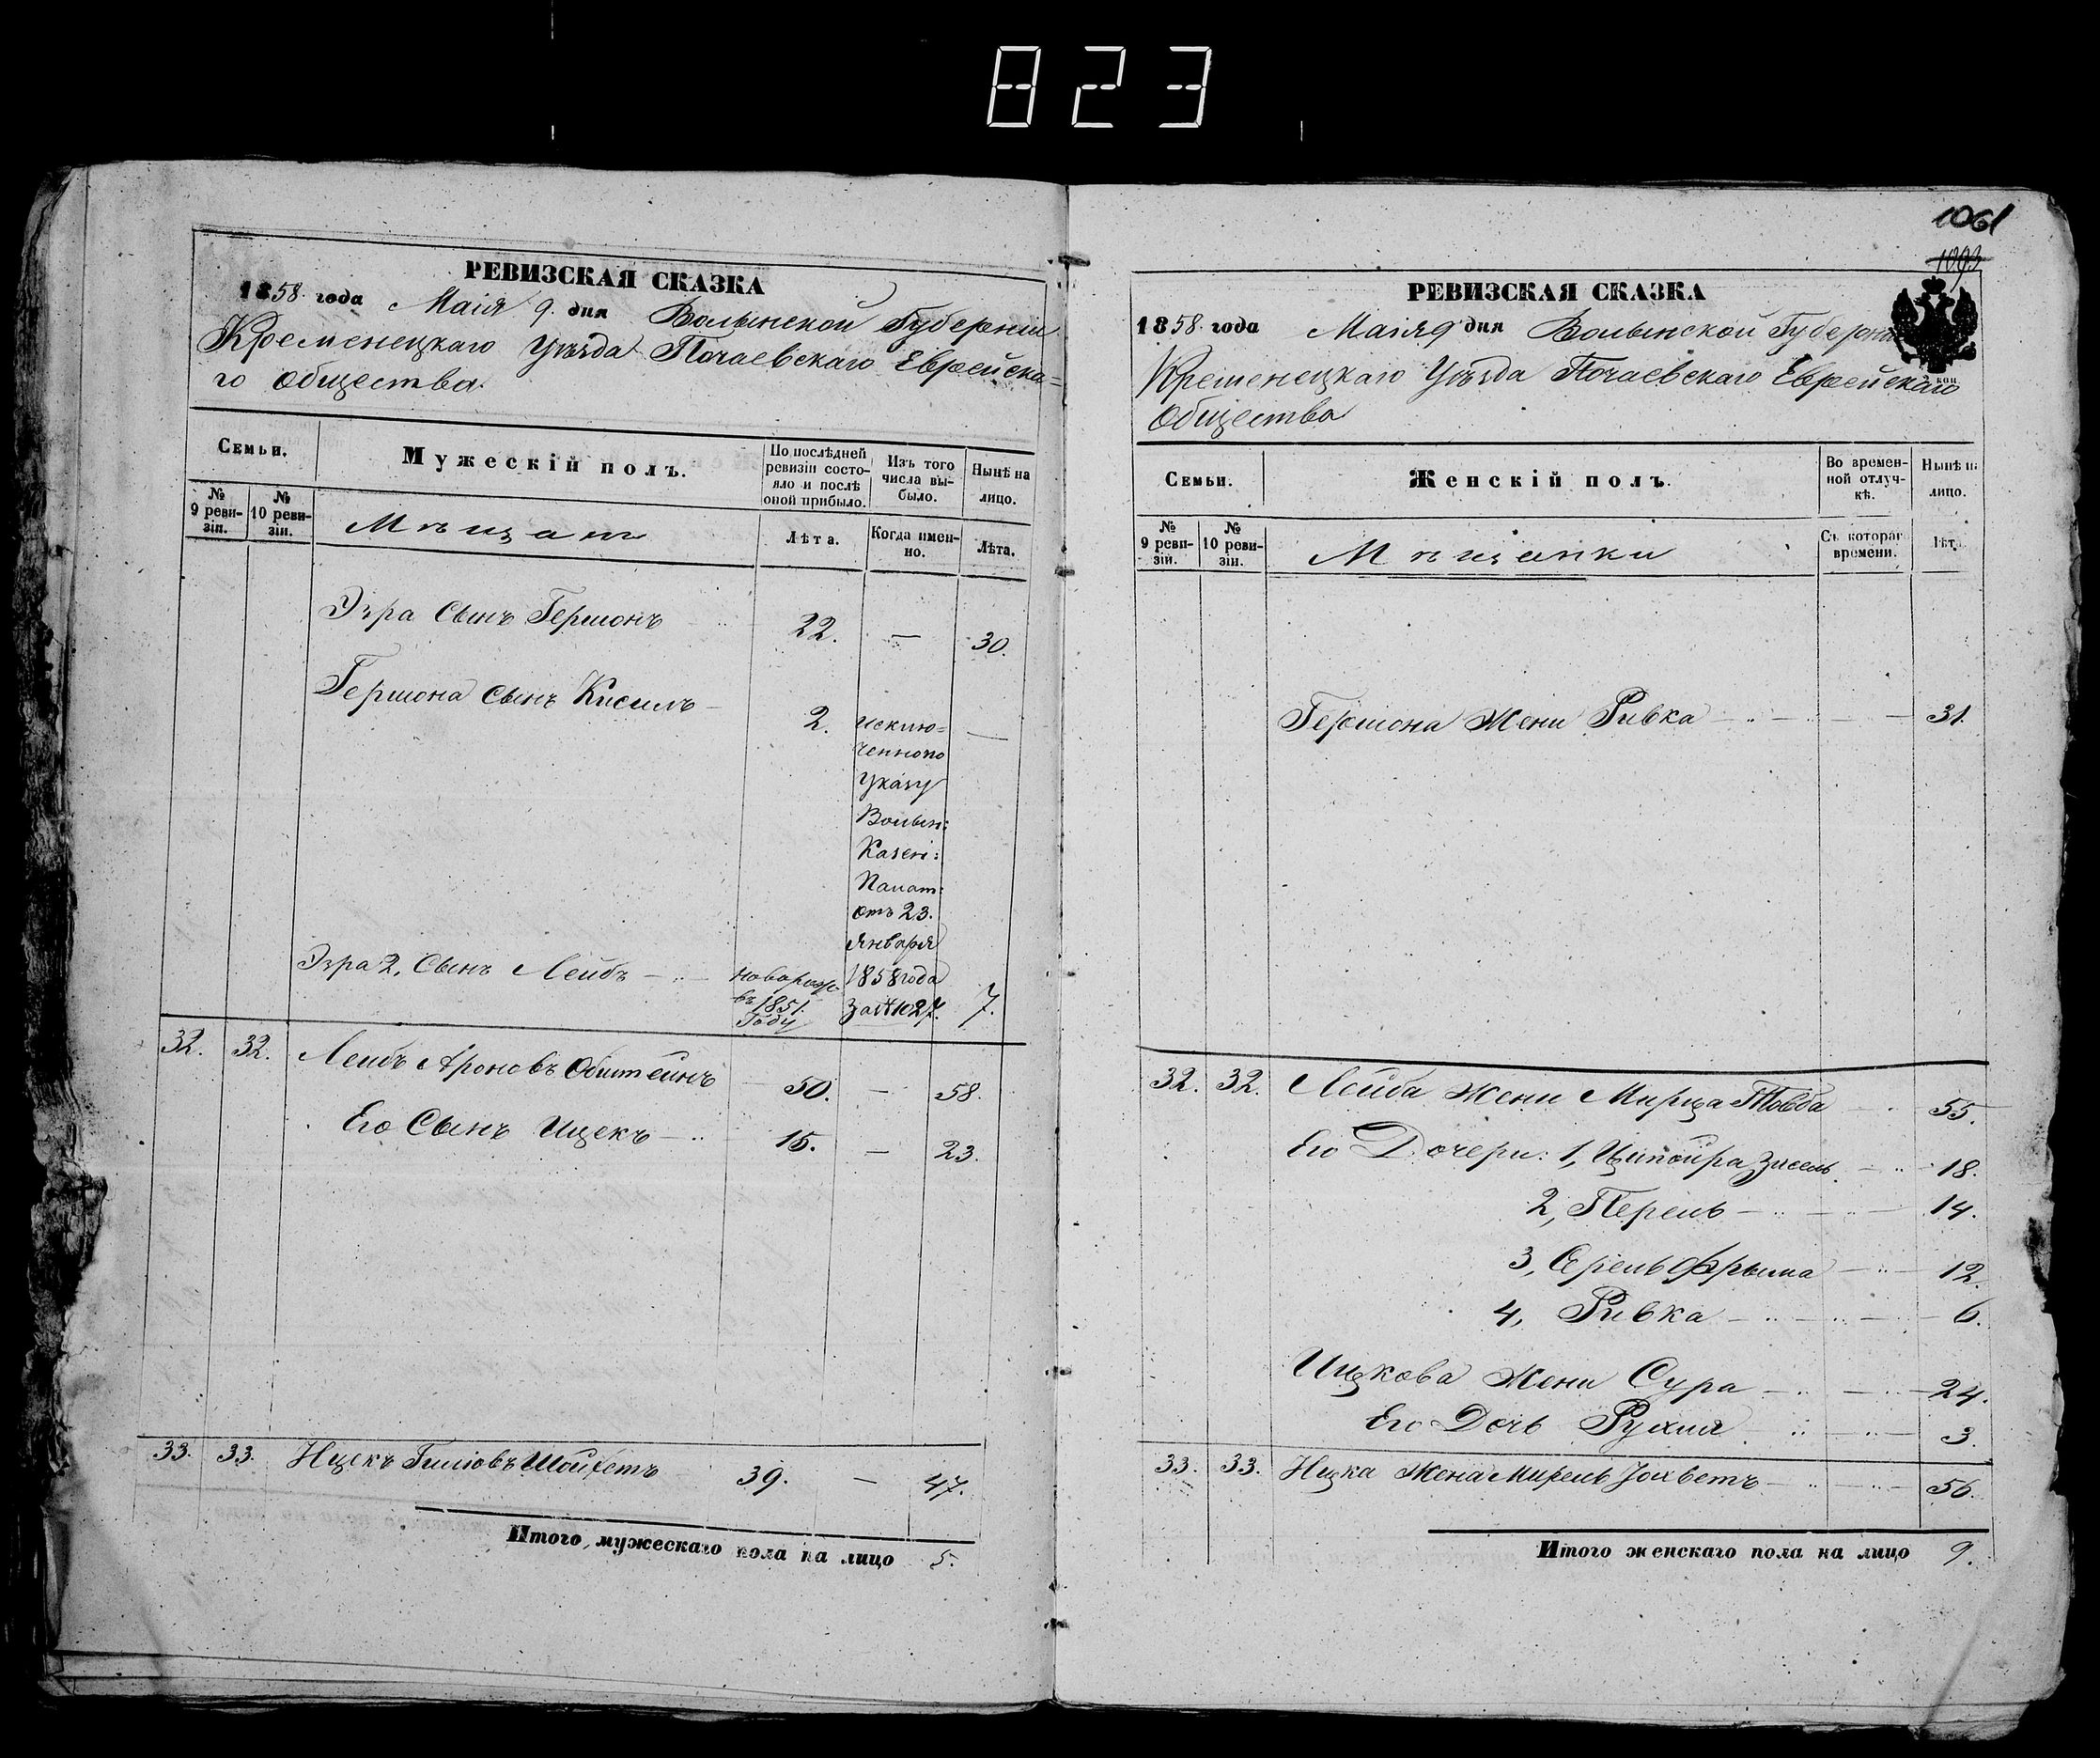 823
РЕВИЗСКАЯ СКАЗКА
1858 года Маія 9. дня Волынской Губерніи
Кременецкаго Уѣзда Почаевскаго Еврейска=
го общества.
Семьи.
Мужескій полъ.
По послѣдней ревизіи состо-
яло и послѣ оной прибыло.
Изъ того числа вы-
было.
Нынѣ на лицо.
№ 9 реви-
зіи.
№ 10 реви-
зіи.
Мѣщане
Лѣта.
Когда имен-
но.
Лѣта.
Эзра Сынъ Гершонъ 22. — 30.
Гершона Сынъ Кисиль — 2. Исклю=
ченъ по
Указу
Волын:
Казен:
Палат:
отъ 23.
Января
1858 года
За №1027. —
Эзра 2, Сынъ Лейбъ — новорож.
въ 1851.
Году 7.
32. 32. Лейбъ Ароновъ Обштейнъ 50. — 58.
Его Сынъ Ицекъ — 15. — 23.
33. 33. Ицекъ Шойхетъ 39. — 47.
Итого мужескаго пола на лицо 5.
1061
1093
РЕВИЗСКАЯ СКАЗКА
1858 года Маія 9 дня Волынской Губерніи
Кременецкаго Уѣзда Почаевскаго Еврейскаго
общества
Семьи.
Женскій полъ.
Во времен-
ной отлуч-
кѣ.
Нынѣ на
лицо.
№ 9 реви-
зіи.
№ 10 реви-
зіи.
Мѣщанки
Съ котораго
времени.
Лѣта
Гершона Жена Ривка 31.
32. 32. Лейба Жена Мирца Товба 55.
Его Дочери: 1, Ципойра Зисель 18.
2, Перель 14.
3, Фрыма 12.
4, Ривка 6.
Ицкова Жена Сура 24.
Его Дочь Рухля 3.
33. 33. Ицка Жена Мирель 56.
Итого женскаго пола на лицо 9.